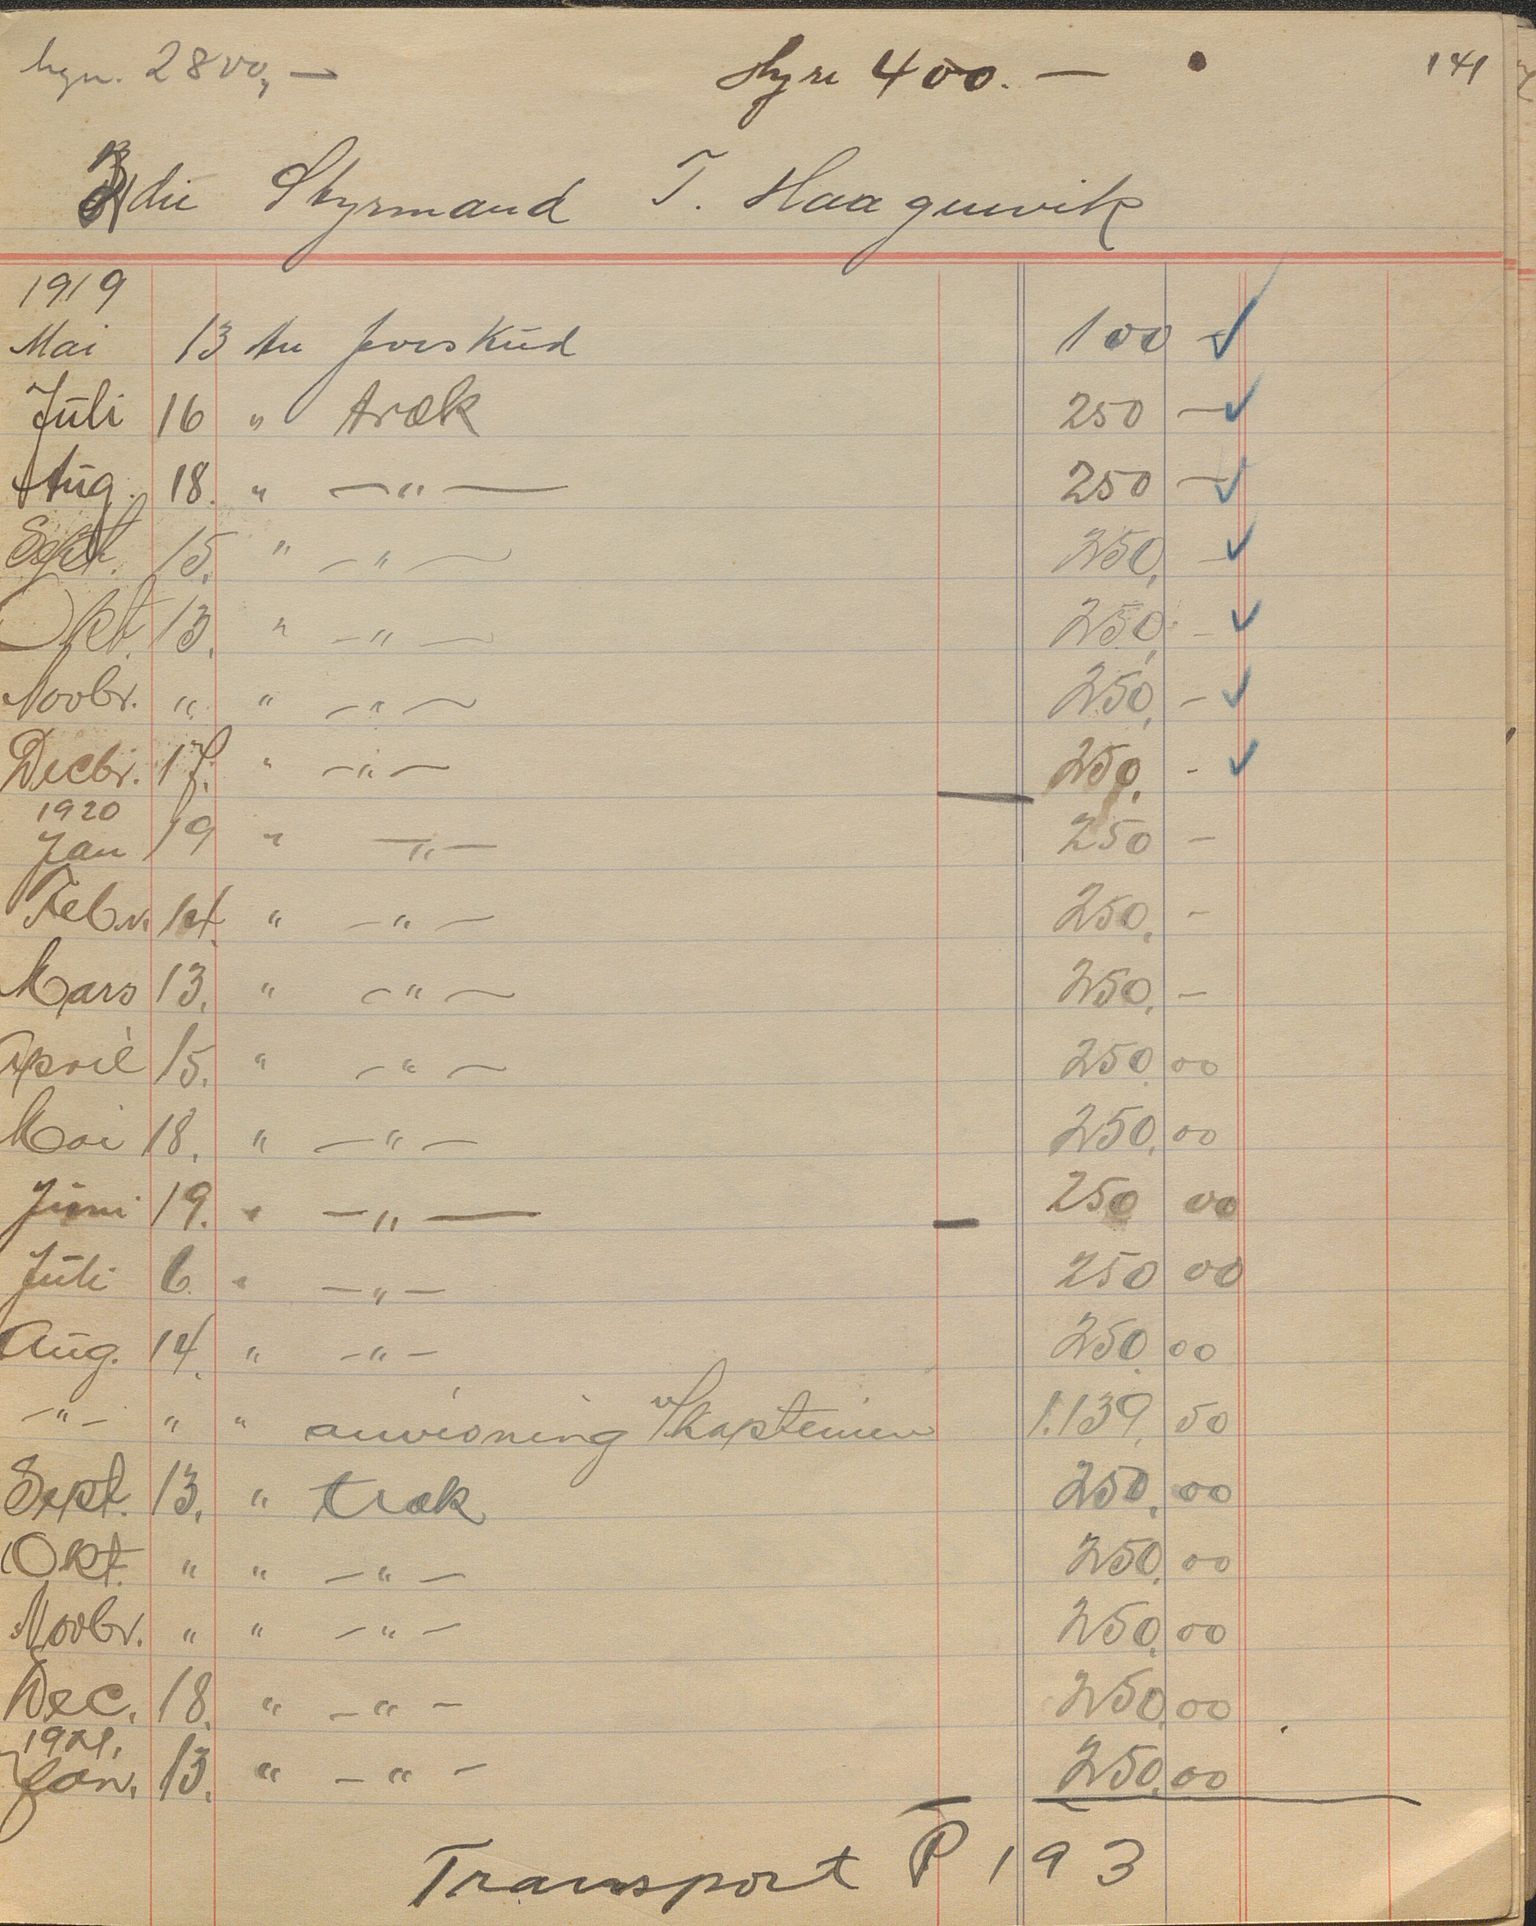 2800,—
Hyre 400.— 141
3die Styrmand T. Haaguevik
1919
Mai 13 An forskud 100 —
Juli 16 " træk 250 —
Aug. 18. " —"— 250 —
Sept. 15. " —"— 250, —
Okt. 13. " —"— 250, —
Novbr. " " —"— 250, —
Decbr. 17. " —"— 250, —
1920
Jan 19 " —"— 250 —
Febr. 14. " —"— 250, —
Mars 13. " —"— 250, —
April 15. " —"— 250.00
Mai 18. " —"— 250.00
Juni 19. " —"— 250 00
Juli 6. " —"— 250 00
Aug. 14. " —"— 250.00
—"— " " anvisning v/kapteinen 1.139,50
Sept. 13. " træk 250,00
Okt. " " —"— 250.00
Novbr. " " —"— 250.00
Dec. 18. " —"— 250.00
1921.
Jan. 13. " —"— 250.00
Transport P 193